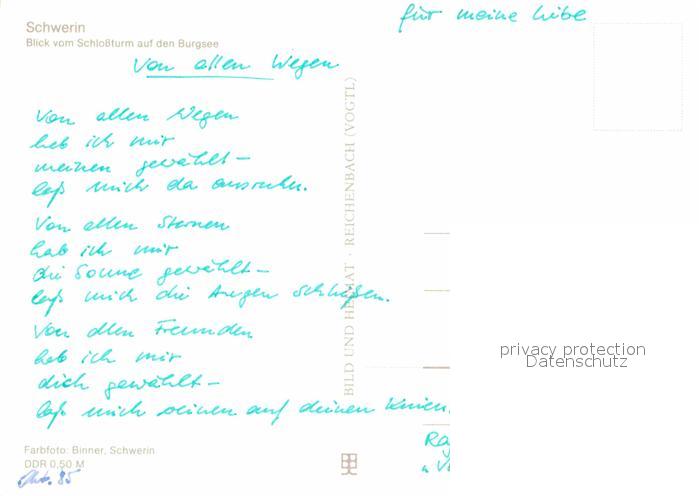 für meine Liebe
Schwerin
Blick vom Schloßturm auf den Burgsee
Von allen Wegen
Von allen Wegen
hab ich mir
meinen gewählt –
laß mich da ausruhn.
Von allen Sternen
hab ich mir
die Sonne gewählt –
laß mich die Augen schließen.
Von allen Freunden
hab ich mir
dich gewählt –
laß mich weinen auf deinen Knien.
BILD UND HEIMAT · REICHENBACH (VOGTL)
privacy protection
Datenschutz
Farbfoto: Binner, Schwerin
DDR 0,50 M
85